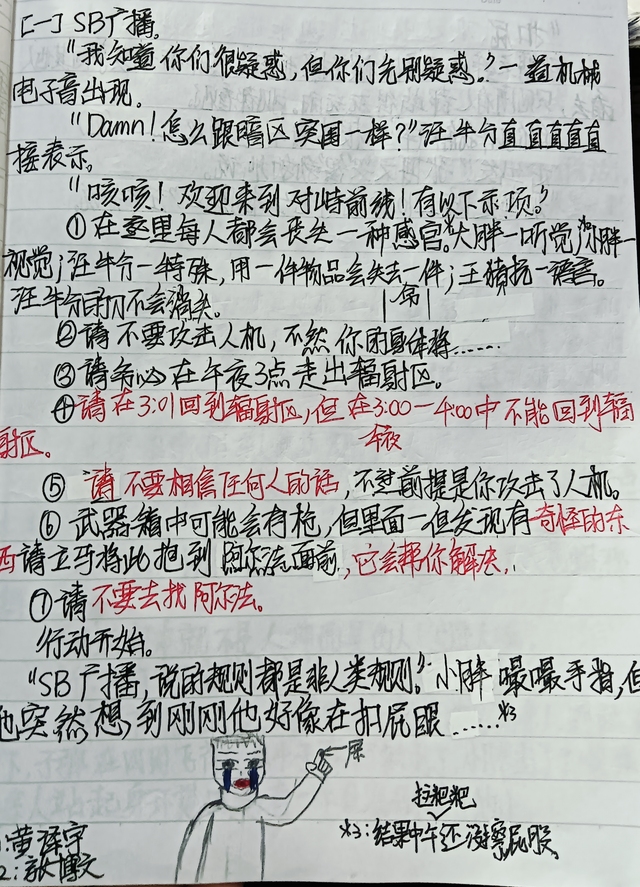 [一] SB广播。
"我知道你们很疑惑,但你们先别疑惑。"一道机械
电子音出现。
"Damn!怎么跟暗区突围一样?"汪牛分直直直直直
接表示。
"咳咳!欢迎来到对峙前线!有以下示项。"
①在这里每人都会丧失一种感官。大胖一听觉;小胖一
视觉;汪牛分一特殊,用一件物品会失去一件;王猜抗一语言。
汪牛分不会消失。
②请不要攻击人机,不然你的身体将……
③请务必在午夜3点走出辐射区。
④请在3:01回到辐射区,但在3:00—4:00中不能回到辐
午夜
射区。
⑤请不要相信任何人的话,不过前提是你攻击了人机。
⑥武器箱中可能会有枪,但里面一但发现有奇怪的东
西请立马将此抱到阿尔法面前,它会帮你解决,
⑦请不要去找阿尔法。
行动开始。
"SB广播,说的规则都是非人类规则。"小胖嘬嘬手指,但
他突然想到刚刚他好像在扣屁眼……*3
屎
拉粑粑
*3:结果中午还没擦屁股。
:黄泽宇
2:张博文